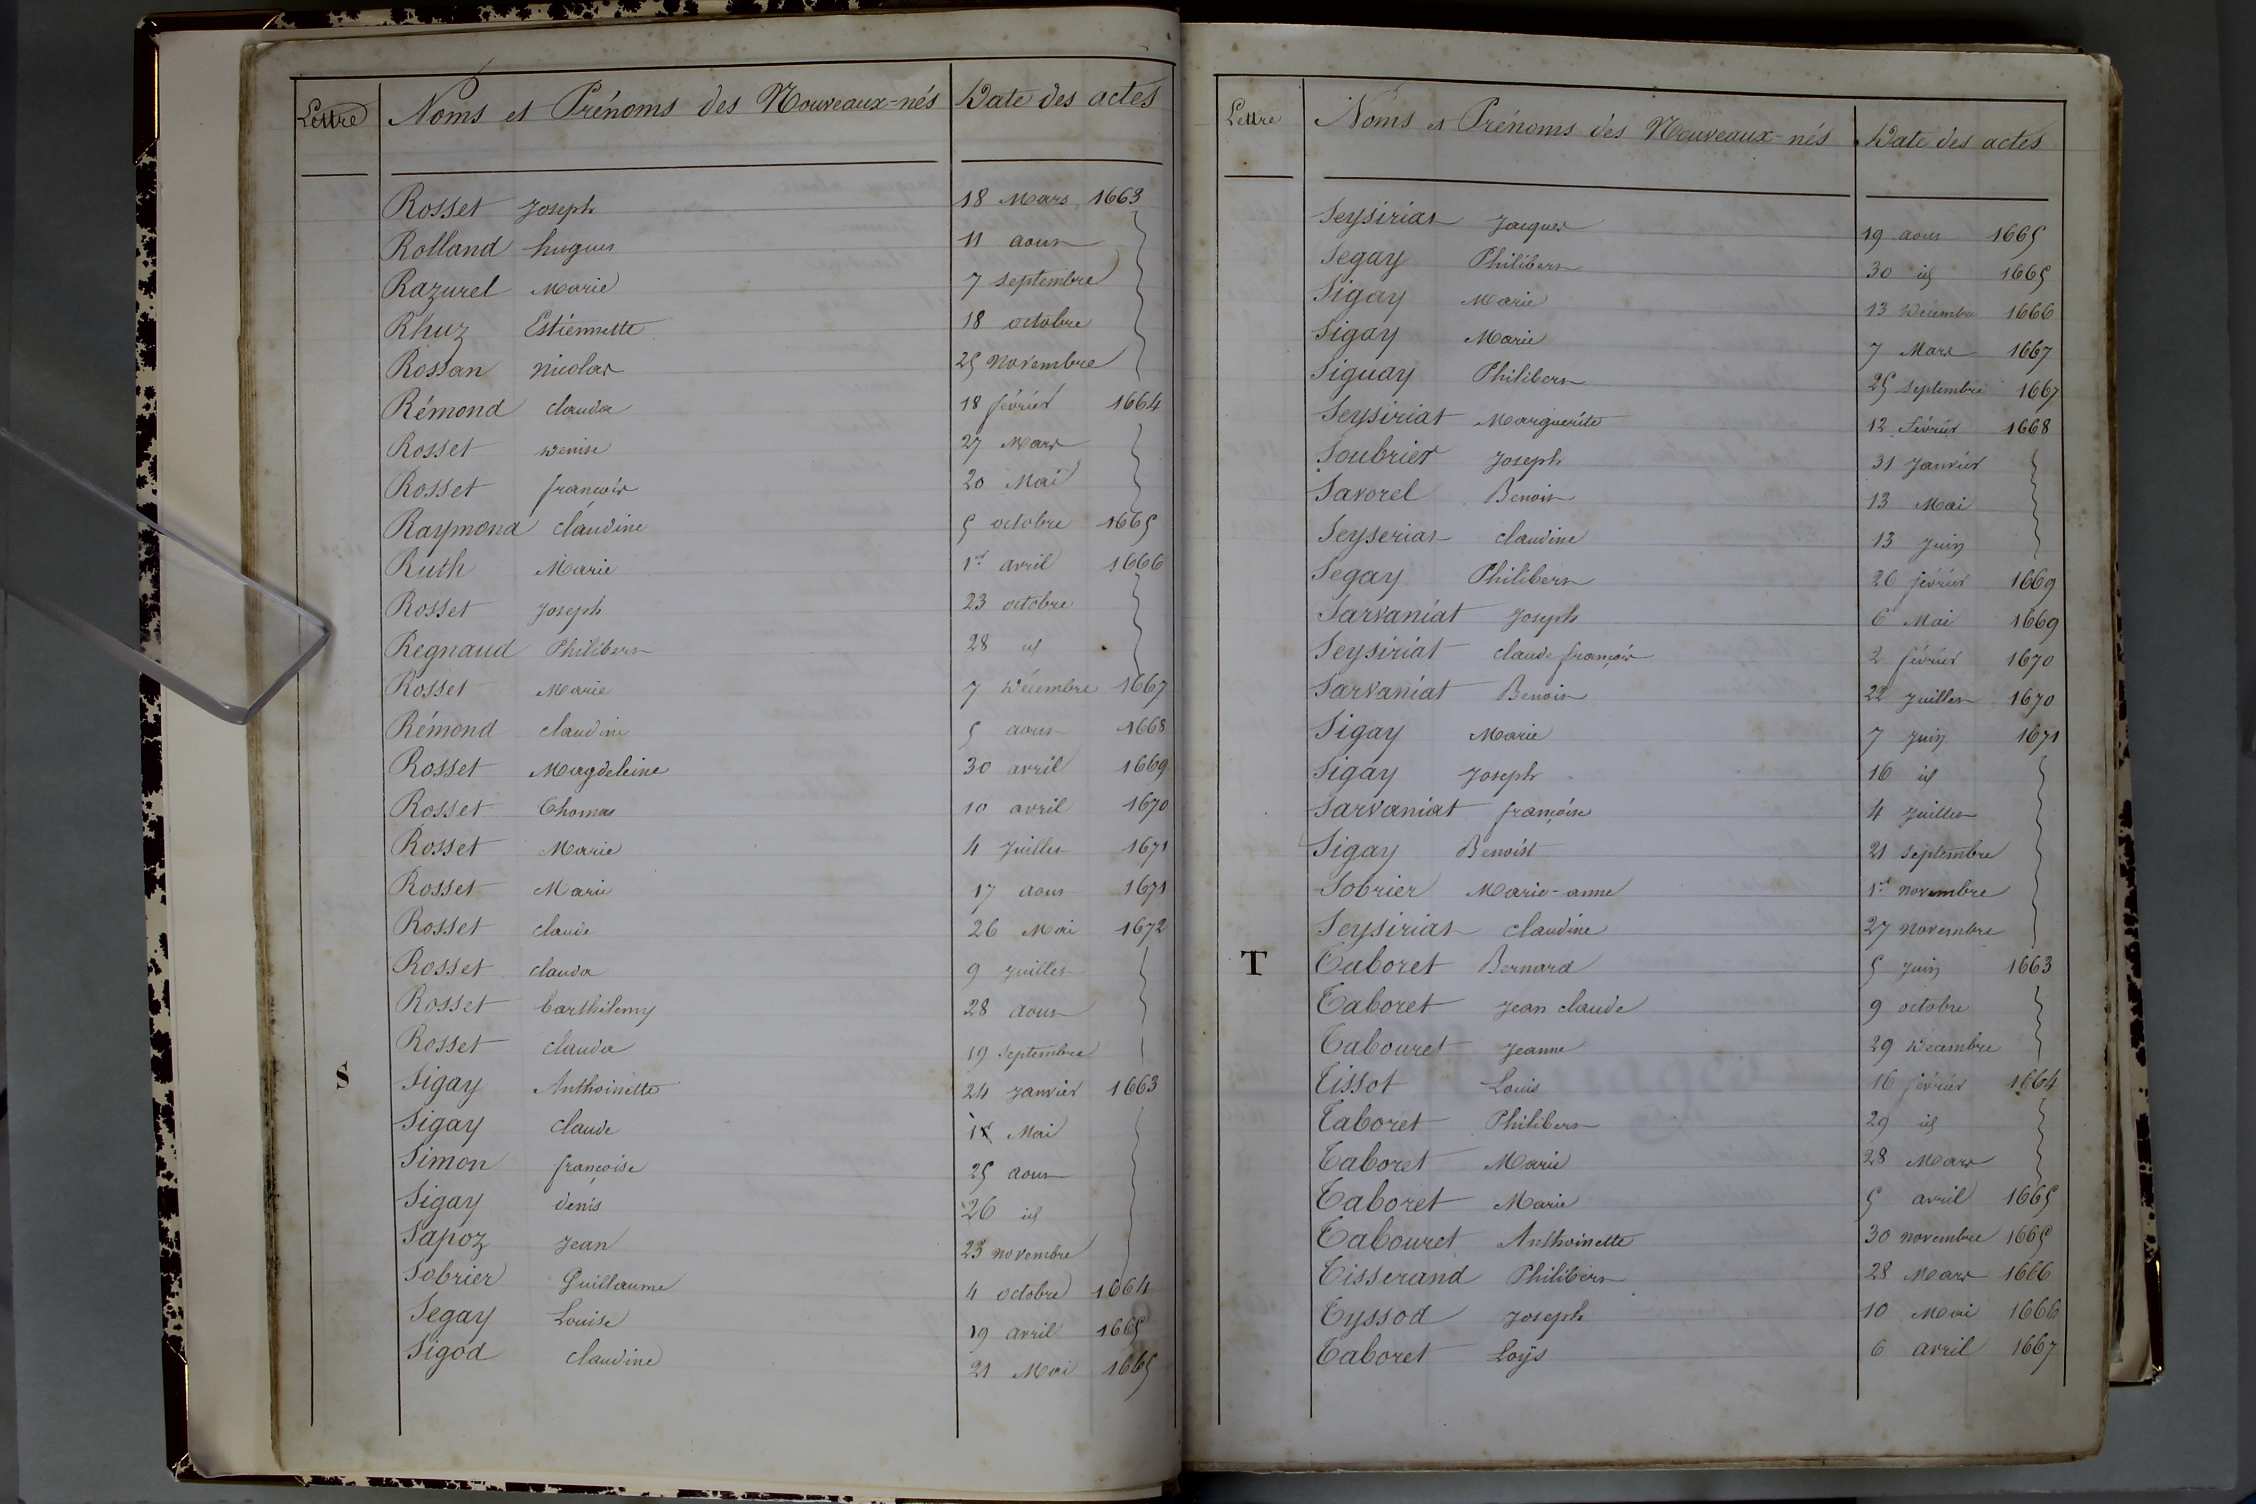 Lettre Noms et Prénoms des Nouveaux-nés Date des actes
Rosset Joseph 18 Mars 1663
Rolland hugues 11 aout
Razurel Marie 7 septembre
Rhuz Estiennette 18 octobre
Rossan Nicolas 25 Novembre
Rémond Clauda 18 février 1664
Rosset Denise 27 Mars
Rosset françois 20 Mai
Raymond Claudine 5 octobre 1665
Ruth Marie 1er avril 1666
Rosset Joseph 23 octobre
Regnaud Philibert 28 id
Rosset Marie 7 Décembre 1667
Rémond Claudine 5 aout 1668
Rosset Magdeleine 30 avril 1669
Rosset Thomas 10 avril 1670
Rosset Marie 4 Juillet 1671
Rosset Marie 17 aout 1671
Rosset Claude 26 Mai 1672
Rosset Clauda 9 Juillet
Rosset barthelemy 28 aout
Rosset Clauda 19 Septembre
S Sigay Anthoinette 24 Janvier 1663
Sigay Claude Mai
Simon françoise 25 aout
Sigay denis 26 id
Sapoz Jean 23 novembre
Sobrier Guillaume 4 octobre 1664
Segay Louise 19 avril 1665
Sigod Claudine 21 Mai 1665
Lettre Noms et Prénoms des Nouveaux-nés Date des actes
Seysiriat Jacques 19 aout 1665
Segay Philibert 30 id 1665
Sigay Marie 13 Décembre 1666
Sigay Marie 7 Mars 1667
Siguay Philibert 25 septembre 1667
Seysiriat Marguerite 12 février 1668
Soubrier Joseph 31 Janvier
Savorel Benoit 13 Mai
Seyseriat Claudine 13 Juin
Segay Philibert 26 février 1669
Sarvaniat Joseph 6 Mai 1669
Seysiriat Claude françois 2 février 1670
Sarvaniat Benoit 22 Juillet 1670
Sigay Marie 7 Juin 1671
Sigay Joseph 16 id
Sarvaniat françoise 4 Juillet
Sigay Benoist 21 septembre
Sobrier Marie-anne 1er novembre
Seysiriat Claudine 27 novembre
T Taboret Bernard 5 Juin 1663
Taboret Jean Claude 9 octobre
Tabouret Jeanne 29 Décembre
Tissot Louis 16 février 1664
Taboret Philibert 29 id
Taboret Marie 28 Mars
Taboret Marie 5 avril 1665
Tabouret Anthoinette 30 novembre 1665
Tisserand Philibert 28 Mars 1666
Tyssod Joseph 10 Mai 1666
Taboret Loÿs 6 avril 1667